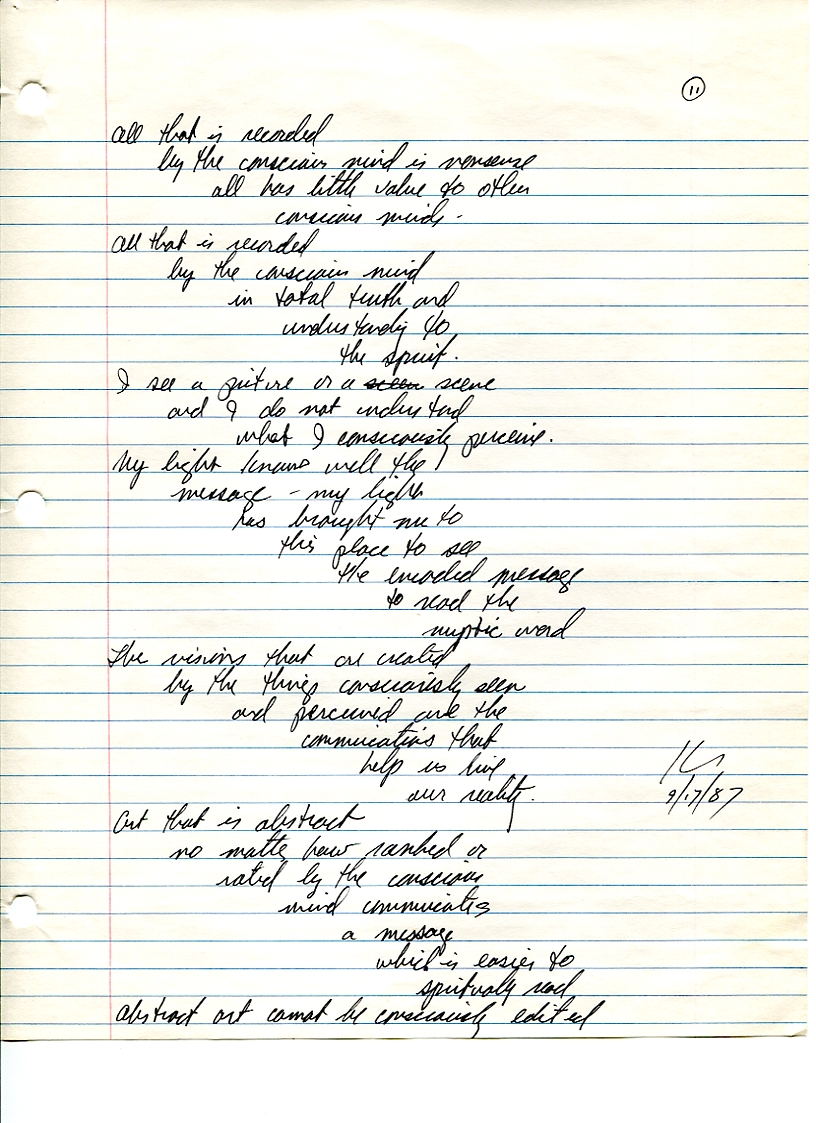 11
All that is recorded
by the conscious mind is nonsense
all has little value to other
conscious minds.
All that is recorded
by the conscious mind
in total truth and
understanding to
the spirit.
I see a picture or a seeen scene
and I do not understand
what I consciously perceive.
My light knows well the
message - my light
has brought me to
this place to see
the encoded message
to read the
mystic word
The visions that are created
by the things consciously seen
and perceived are the
communications that
help us live
our reality.
9/17/87
Art that is abstract
no matter how ranked or
rated by the conscious
mind communicates
a message
which is easier to
spiritually read
Abstract art cannot be consciously edited